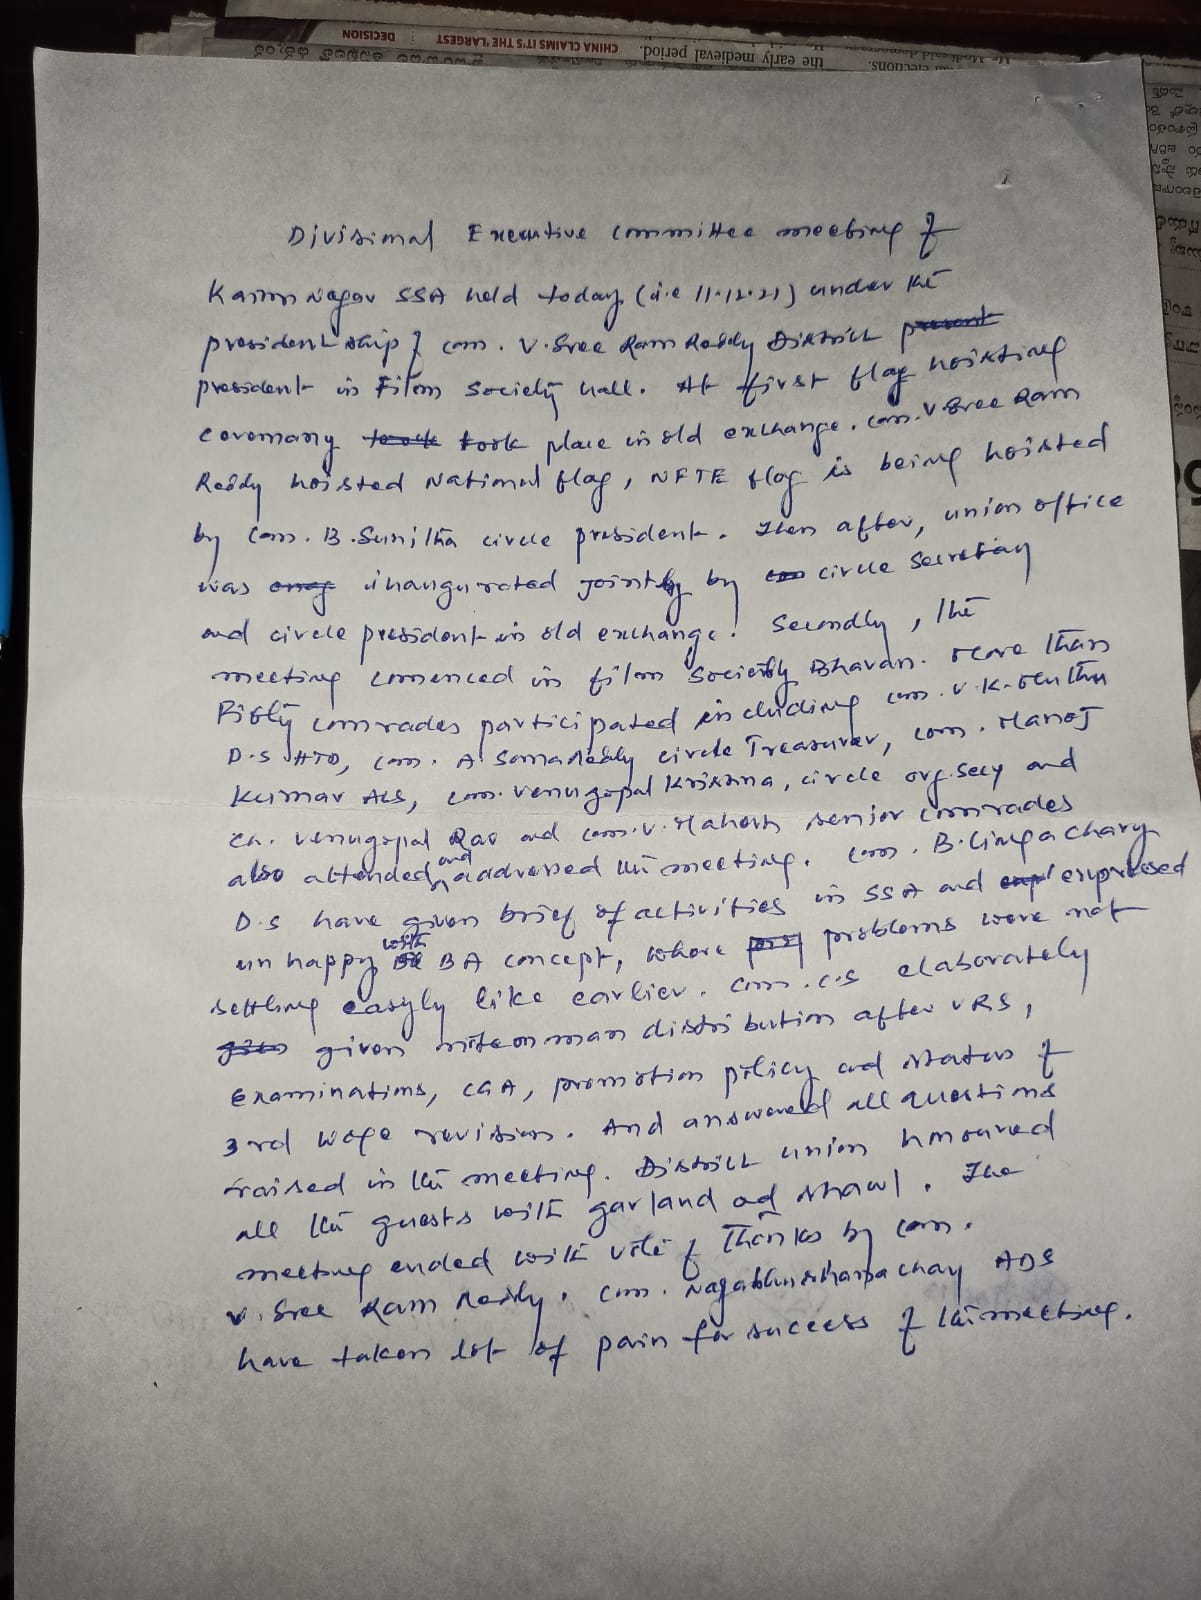 CHINA CLAIMS IT'S THE 'LARGEST
DECISION
the early medieval period.
elections.
Divisional Executive committee meeting of
Karim Nagar SSA held today (i.e 11.12.21) under the
president ship of com. V. Sree Ram Reddy District present
president in Film Society hall. At first flag hoisting
ceremany took took place in old exchange. com. V. Sree Ram
Reddy hoisted National flag, NFTE flag is being hoisted
by com. B. Sunitha circle president. Then after, union office
was inaugurated jointly by circle secretary
and circle president in old exchange. Secondly, the
meeting comenced in film Society Bhavan. More than
Fifty comrades participated including com. V.K.
D.S HTD, com. A Sama Reddy circle Treasurer, com. Manoj
Kumar ACS, com. Venugopal Krishna, circle org. secy and
Ch. Venugopal Rao and com. V. Mahesh senior comrades
also attended and addressed the meeting. com. B. Lingachary
D.S have given brief of activities in SSA and expressed
unhappy with BA concept, where problems were not
settling easyly like earlier. com. C.S elaborately
given man distribution after VRS,
Examinations, CGA, promotion policy and status of
3rd wage revision. And answered all questions
raised in the meeting. District union honoured
all the guests with garland ad shawl. The
meeting ended with vote of Thanks by com.
V. Sree Ram Reddy. com. Nagabhushanachary ADS
have taken lot of pain for success of the meeting.